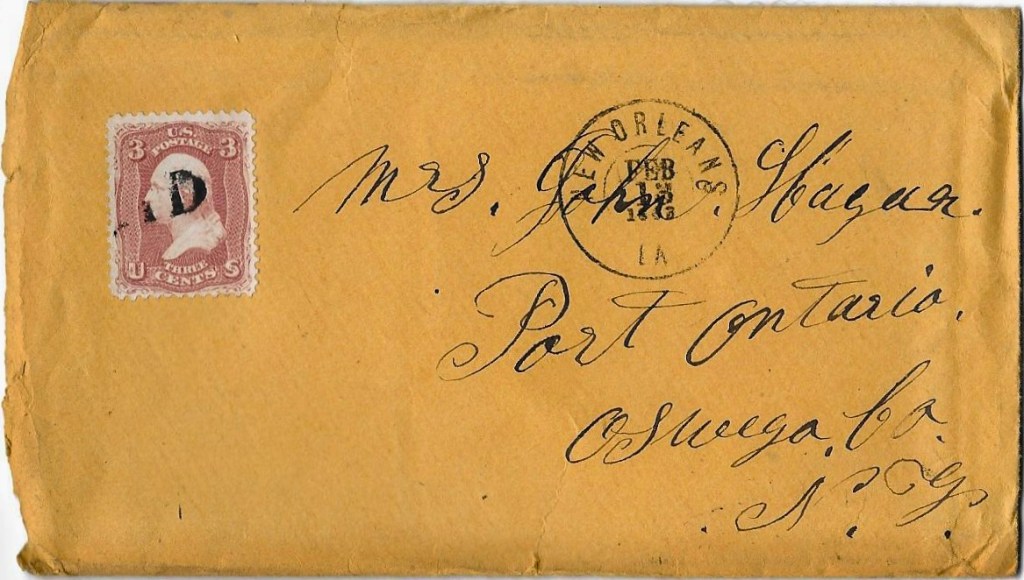 U.S.
POSTAGE
3 3
U S
THREE
CENTS
NEW ORLEANS
FEB
LA
Mrs. John. Hagar.
Port Ontario.
Oswego, Co.
N. Y.